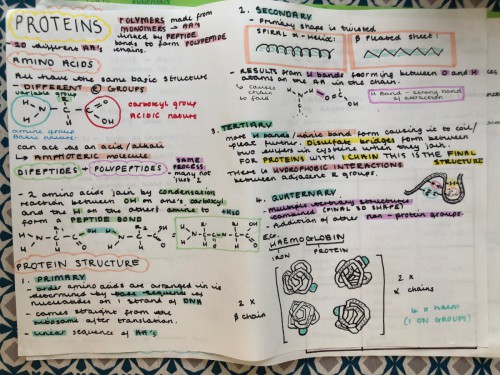 PROTEINS
POLYMERS made from
MONOMERS → AA's
linked by PEPTIDE
bonds to form POLYPEPTIDE
chains.
- 20 different AA's
AMINO ACIDS
All have the same basic structure
- DIFFERENT R GROUPS
variable group
R
H
N
C
C
O
OH
H
H
carboxyl group
ACIDIC nature
amine group
Basic nature
can act as an acid/alkali
↳ AMPHOTERIC molecule
DIPEPTIDES + POLYPEPTIDES
SAME
PROCESS:
many not
just 2
- 2 amino acids join by condensation
reaction between OH on one's carboxyl
and the H on the other's amine to
form a PEPTIDE BOND
+H₂O
PROTEIN STRUCTURE
1. PRIMARY
- order amino acids are arranged in is
determined by base sequence
nucleotides on 1 strand of DNA
- comes straight from the
ribosome after translation.
- linear sequence of AA's
2. SECONDARY
- Primary shape is twisted
SPIRAL α-Helix:
β Pleated sheet:
- RESULTS from H bonds forming between O and H
atoms on the AA in the chain.
↳ causes
chain
to fold
H Bond - strong bond
of attraction
3. TERTIARY
more H bonds/ionic bond form causing it to coil/
pleat further. Disulfide bridges form between
two sulfurs in cysteine when they join.
FOR PROTEINS WITH 1 CHAIN THIS IS THE FINAL
STRUCTURE
There is HYDROPHOBIC INTERACTIONS
between adjacent R groups.
4. QUATERNARY
- multiple tertiary structures
combined (FINAL 3D SHAPE)
- Addition of other non-protein groups.
E.G.
HAEMOGLOBIN
IRON PROTEIN
2 x
β chain
2 x
α chains
4 x haem
(IRON GROUPS)